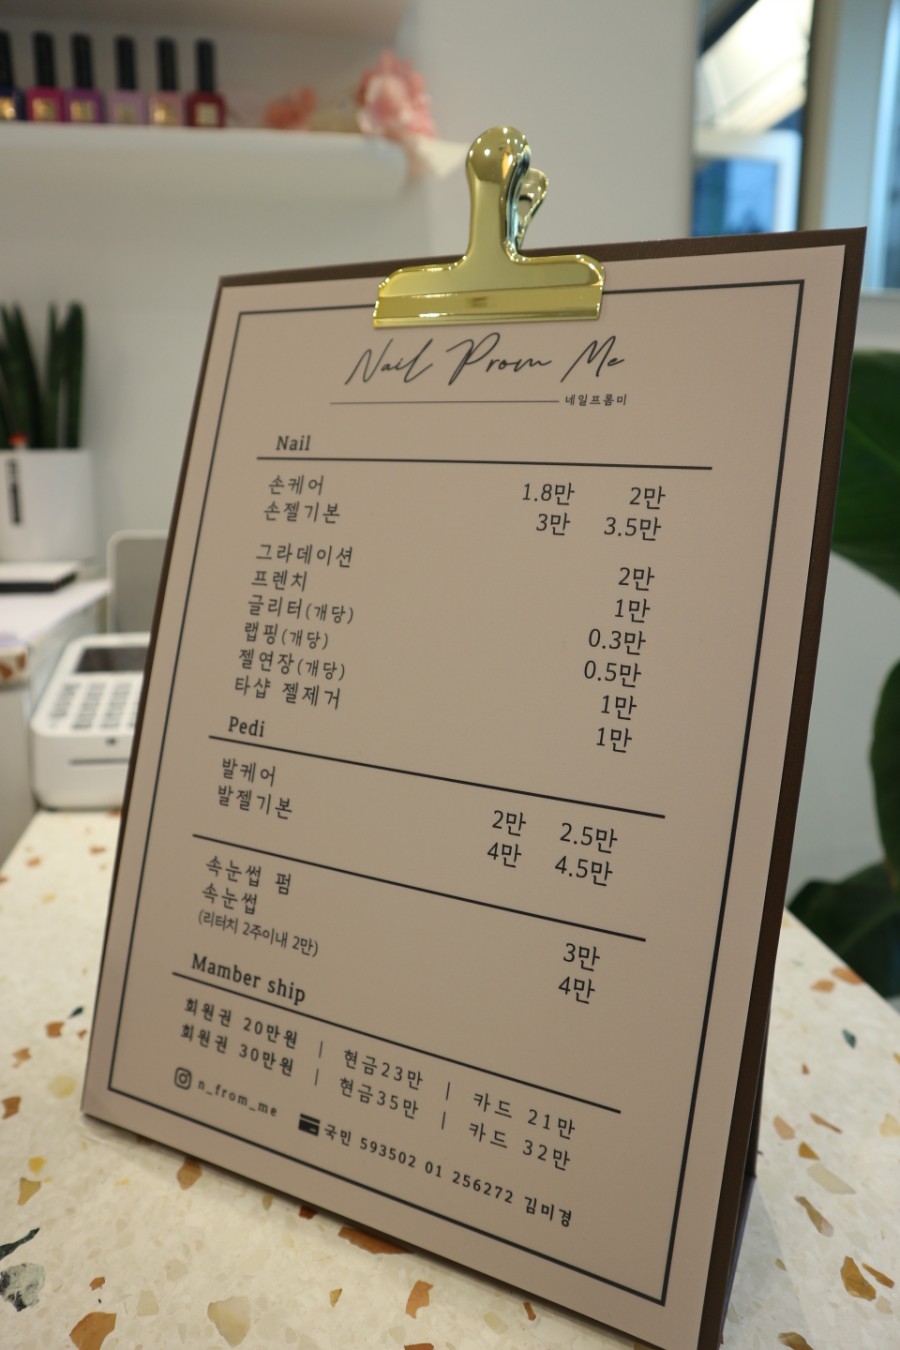 Nail Prom Me
네일프롬미
Nail
손케어 1.8만 2만
손젤기본 3만 3.5만
그라데이션 2만
프렌치 1만
글리터(개당) 0.3만
랩핑(개당) 0.5만
젤연장(개당) 1만
타샵 젤제거 1만
Pedi
발케어 2만 2.5만
발젤기본 4만 4.5만
속눈썹 펌 3만
속눈썹 4만
(리터치 2주이내 2만)
Mamber ship
회원권 20만원 | 현금23만 | 카드 21만
회원권 30만원 | 현금35만 | 카드 32만
n_from_me 국민 593502 01 256272 김미경